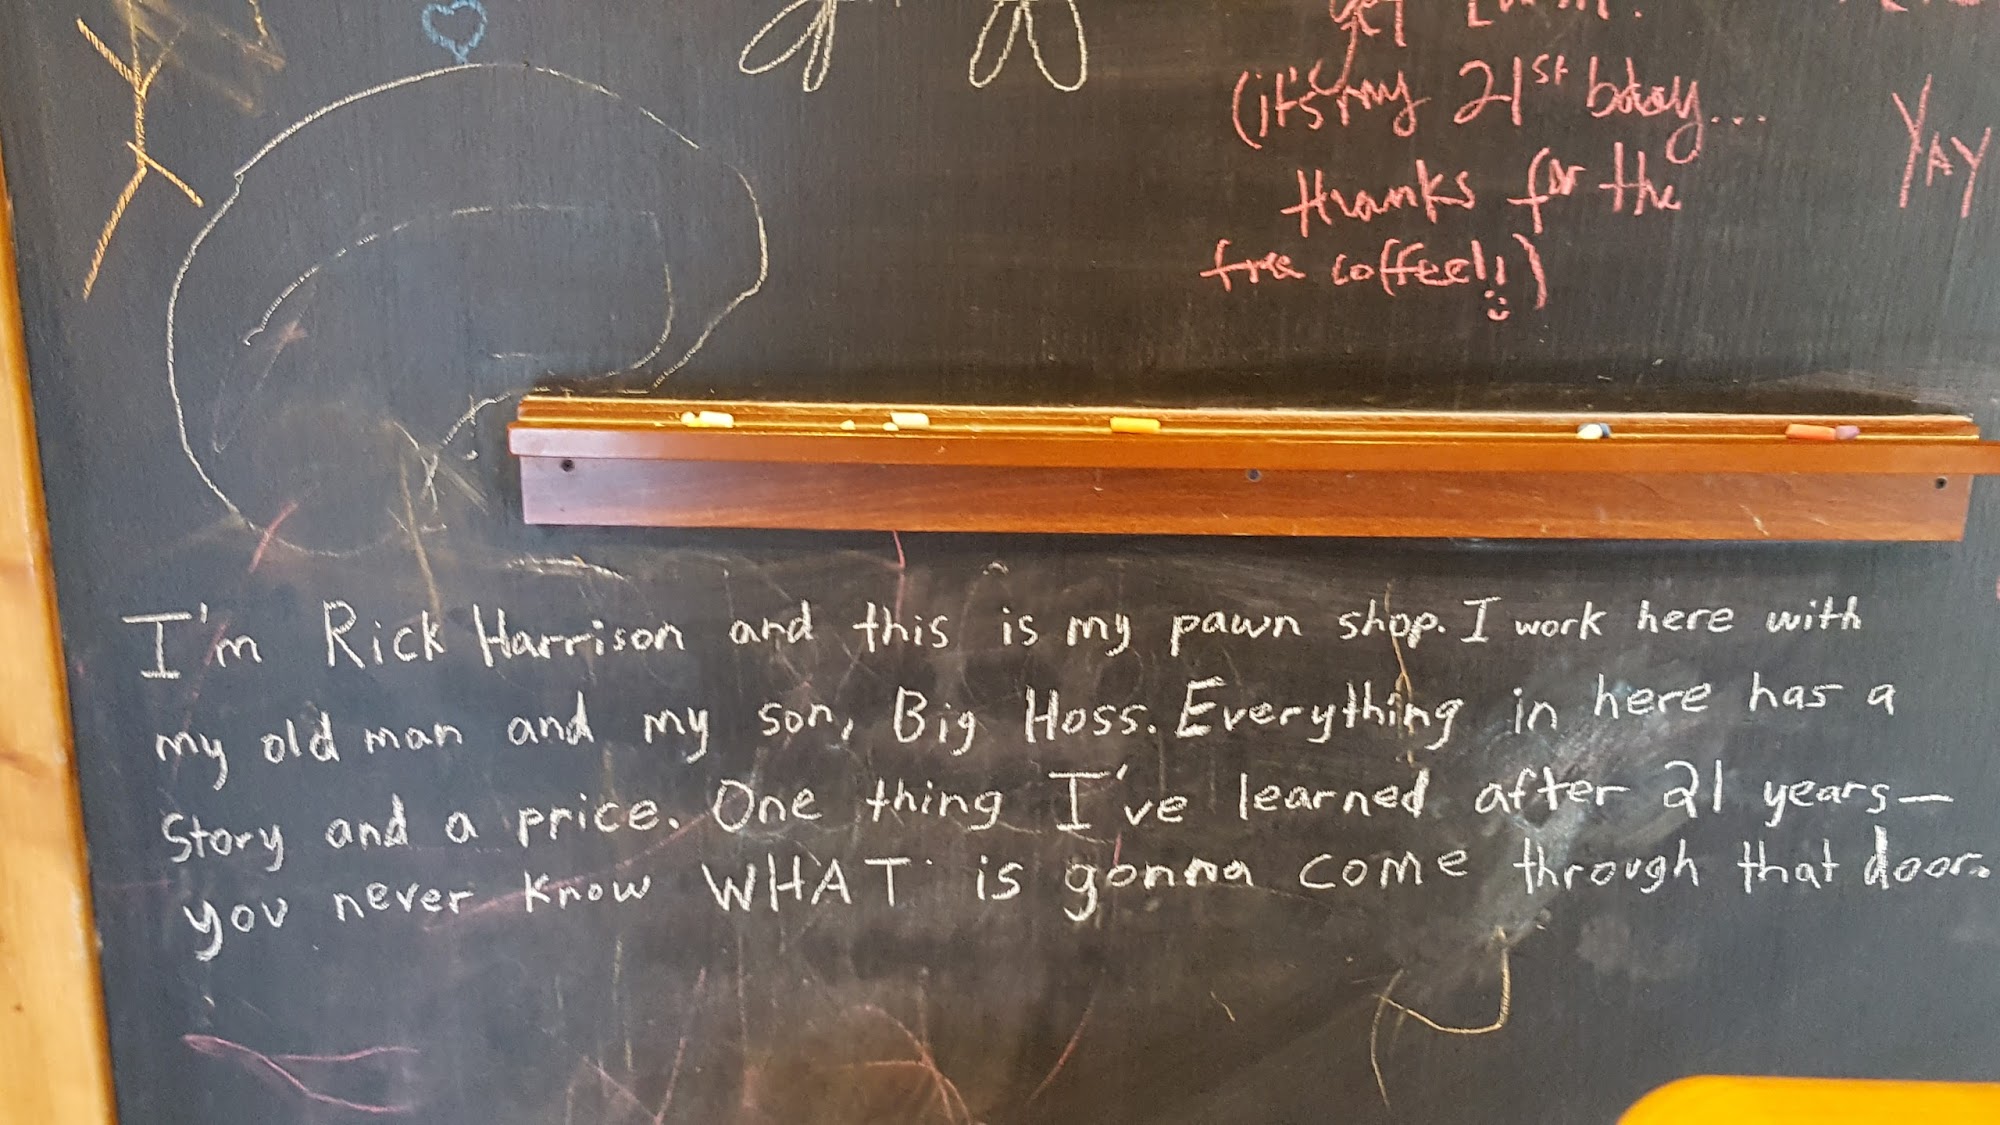 (it's my 21st bday...
thanks for the
free coffee!!)
YAY
I'm Rick Harrison and this is my pawn shop. I work here with
my old man and my son, Big Hoss. Everything in here has a
story and a price. One thing I've learned after 21 years—
you never know WHAT is gonna come through that door.